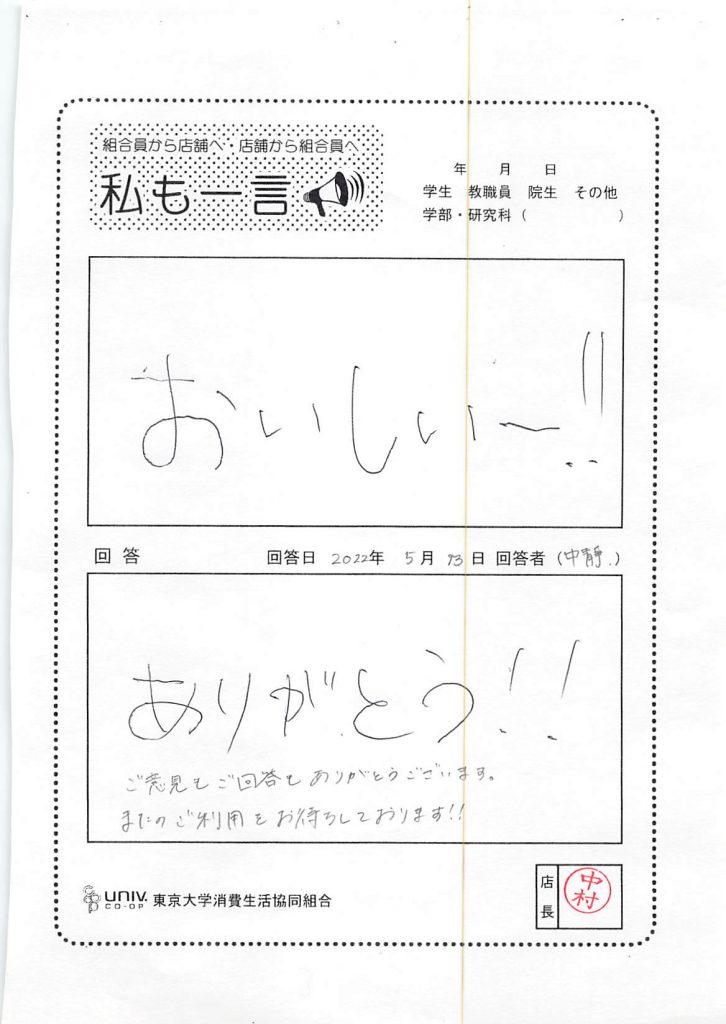 組合員から店舗へ・店舗から組合員へ
私も一言
年 月 日
学生 教職員 院生 その他
学部・研究科( )
おいしい〜!!
回答 回答日 2022年 5月 23日 回答者(中静)
ありがとう!!
ご意見もご回答もありがとうございます。
またのご利用をお待ちしております!!
UNIV. CO-OP 東京大学消費生活協同組合
店長
中村